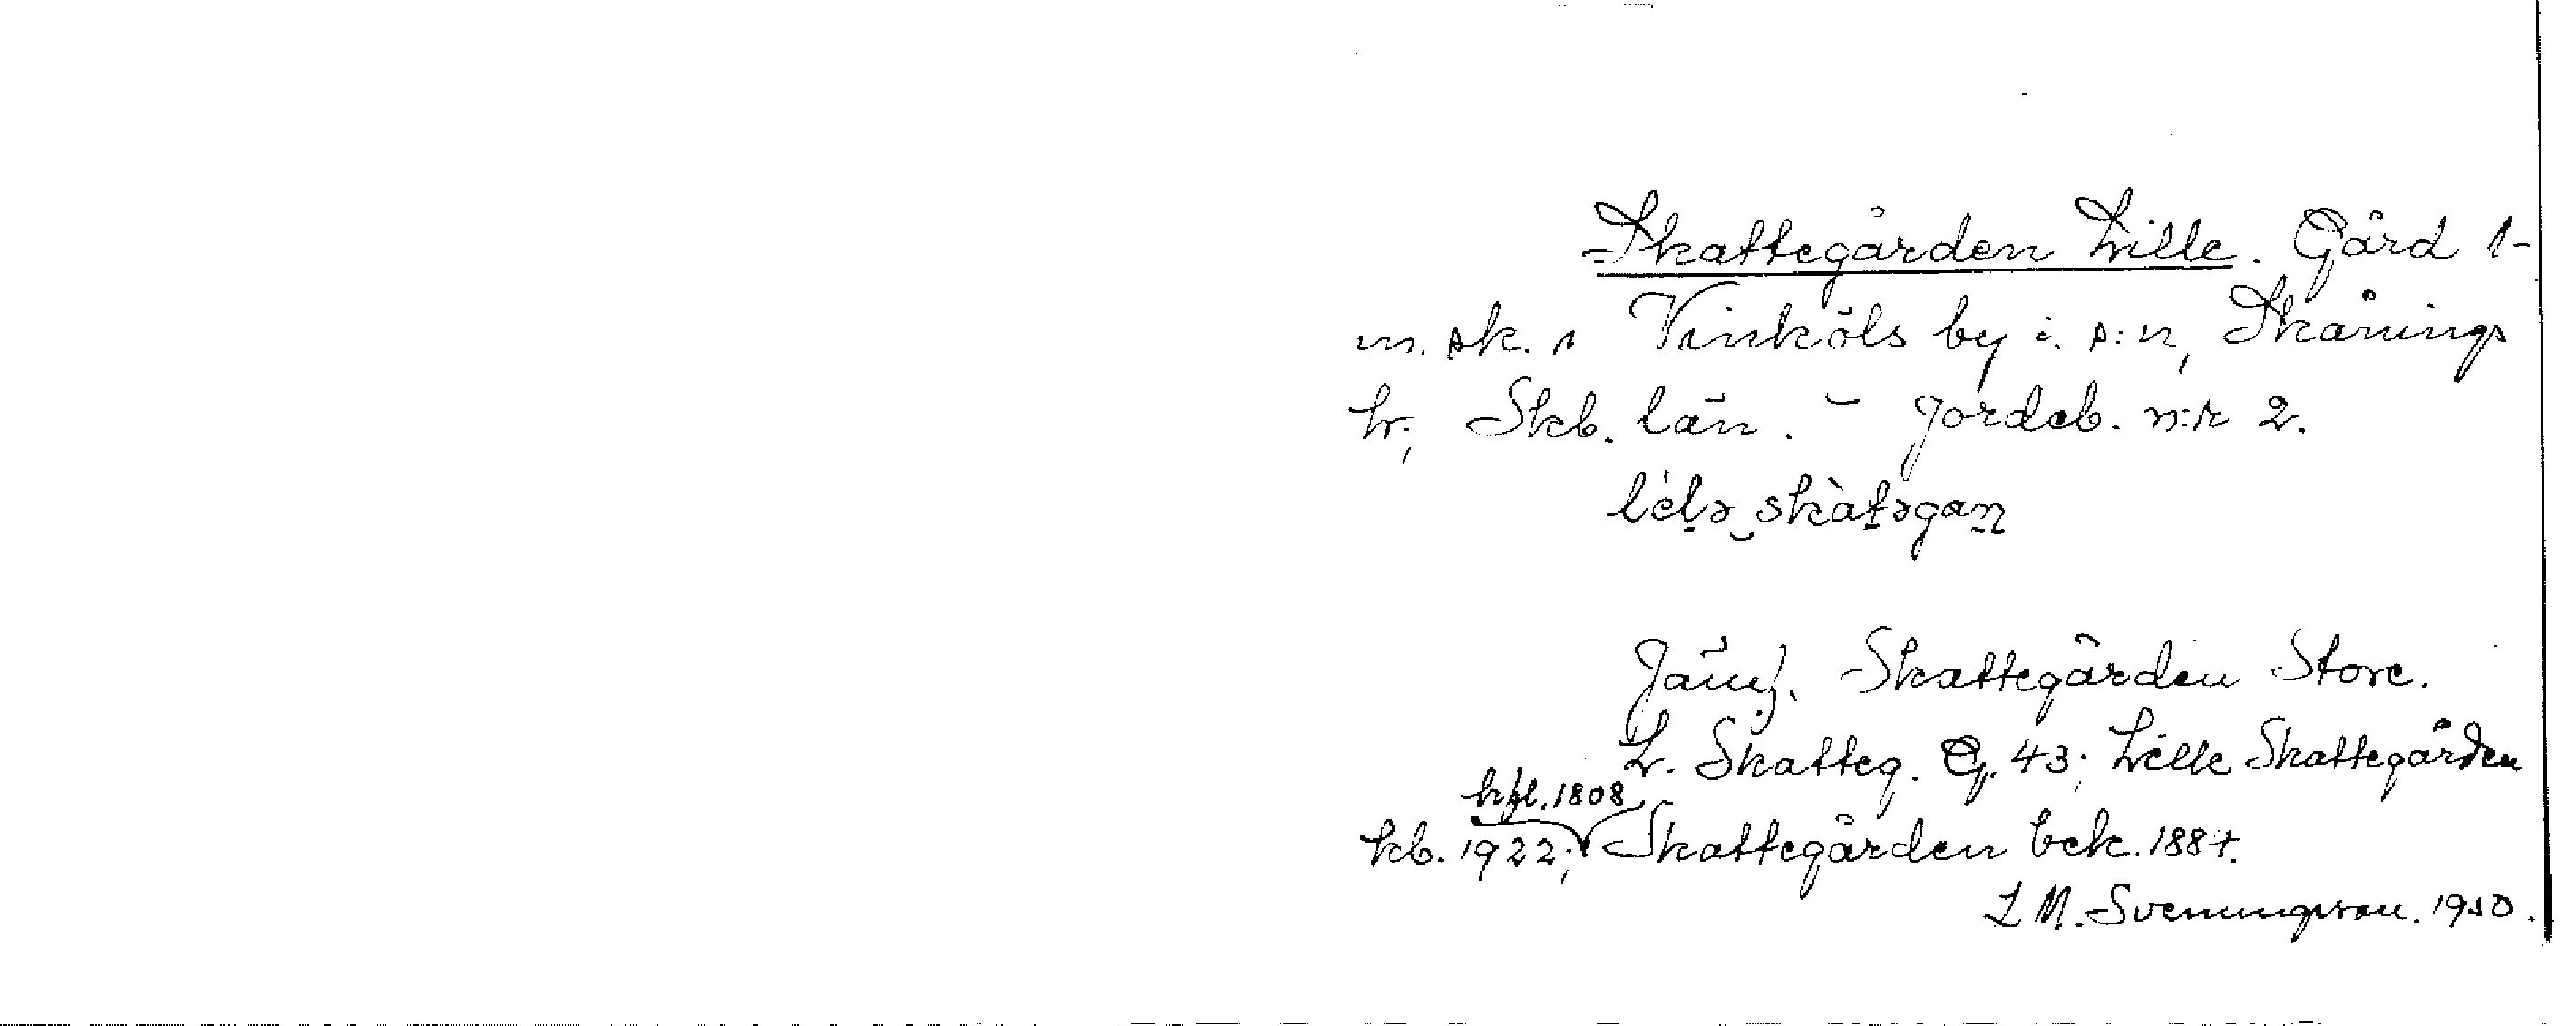 Skattegården Lille. Gård 1-
m. sk. i Vinköls by i. s:n, Skånings
hr., Skb. län. – Jordeb. n:r 2.
lelə skatəgan
Jämf. Skattegården Store.
L. Skatteg. G. 43; Lille Skattegården
hfl. 1808
kb. 1922; Skattegården bek. 1884.
L M. Svenungsson. 1950.